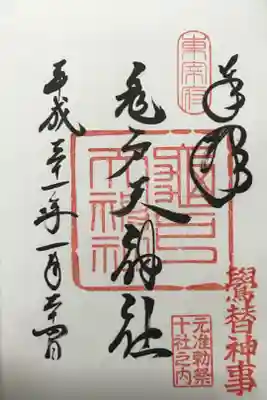 奉拝
鷽替神事
元准勅祭
十社之内
東宰府
亀戸天神社
龜戸
天神社
平成三十一年一月二十四日